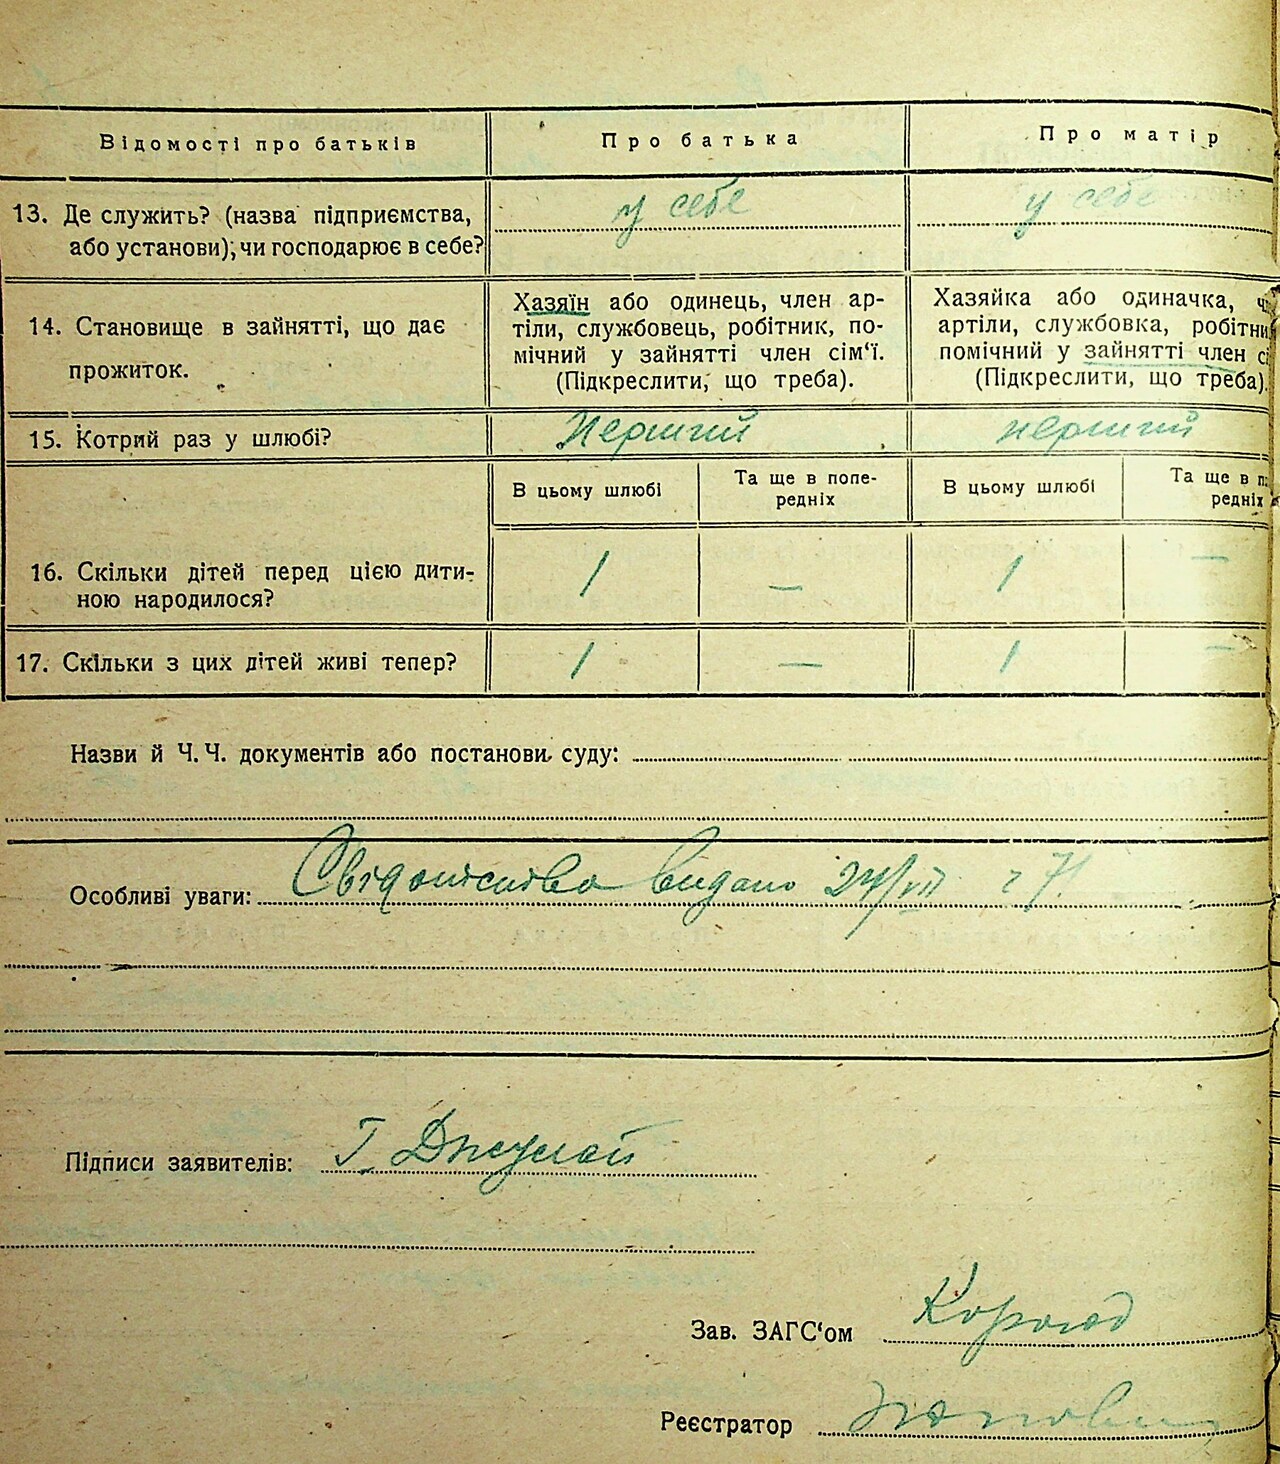 Відомості про батьків Про батька Про матір
13. Де служить? (назва підприємства, у себе у себе
або установи), чи господарює в себе?
Хазяїн або одинець, член ар- Хазяйка або одиначка, ч
14. Становище в зайнятті, що дає тіли, службовець, робітник, по- артіли, службовка, робітни
мічний у зайнятті член сім‘ї. помічний у зайнятті член сі
прожиток. (Підкреслити, що треба). (Підкреслити, що треба).
15. Котрий раз у шлюбі? Перший перший
В цьому шлюбі Та ще в попе- В цьому шлюбі Та ще в п
редніх редніх
16. Скільки дітей перед цією дити- 1 — 1 —
ною народилося?
17. Скільки з цих дітей живі тепер? 1 — 1 —
Назви й Ч. Ч. документів або постанови суду:
Особливі уваги: видано 24/VII
Підписи заявителів: Г. Джулай
Зав. ЗАГС‘ом
Реєстратор